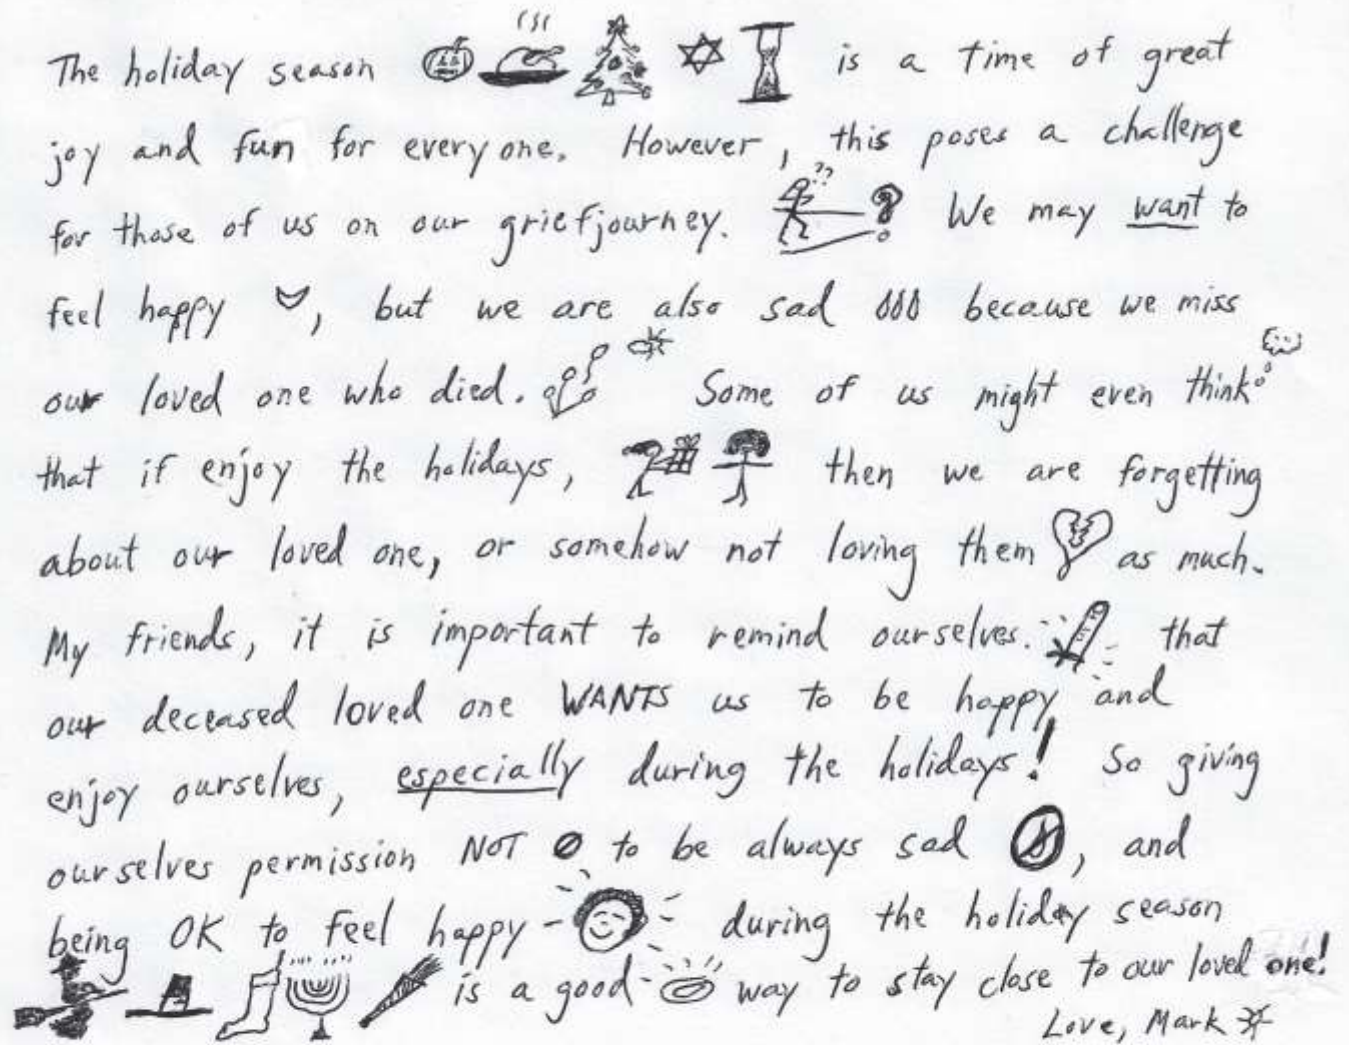 The holiday season is a time of great
joy and fun for everyone. However, this poses a challenge
for those of us on our griefjourney. ?? ? We may want to
feel happy , but we are also sad because we miss
our loved one who died. Some of us might even think
that if enjoy the holidays, then we are forgetting
about our loved one, or somehow not loving them as much.
My friends, it is important to remind ourselves. that
our deceased loved one WANTS us to be happy and
enjoy ourselves, especially during the holidays! So giving
ourselves permission NOT to be always sad , and
being OK to feel happy during the holiday season
is a good way to stay close to our loved one!
Love, Mark